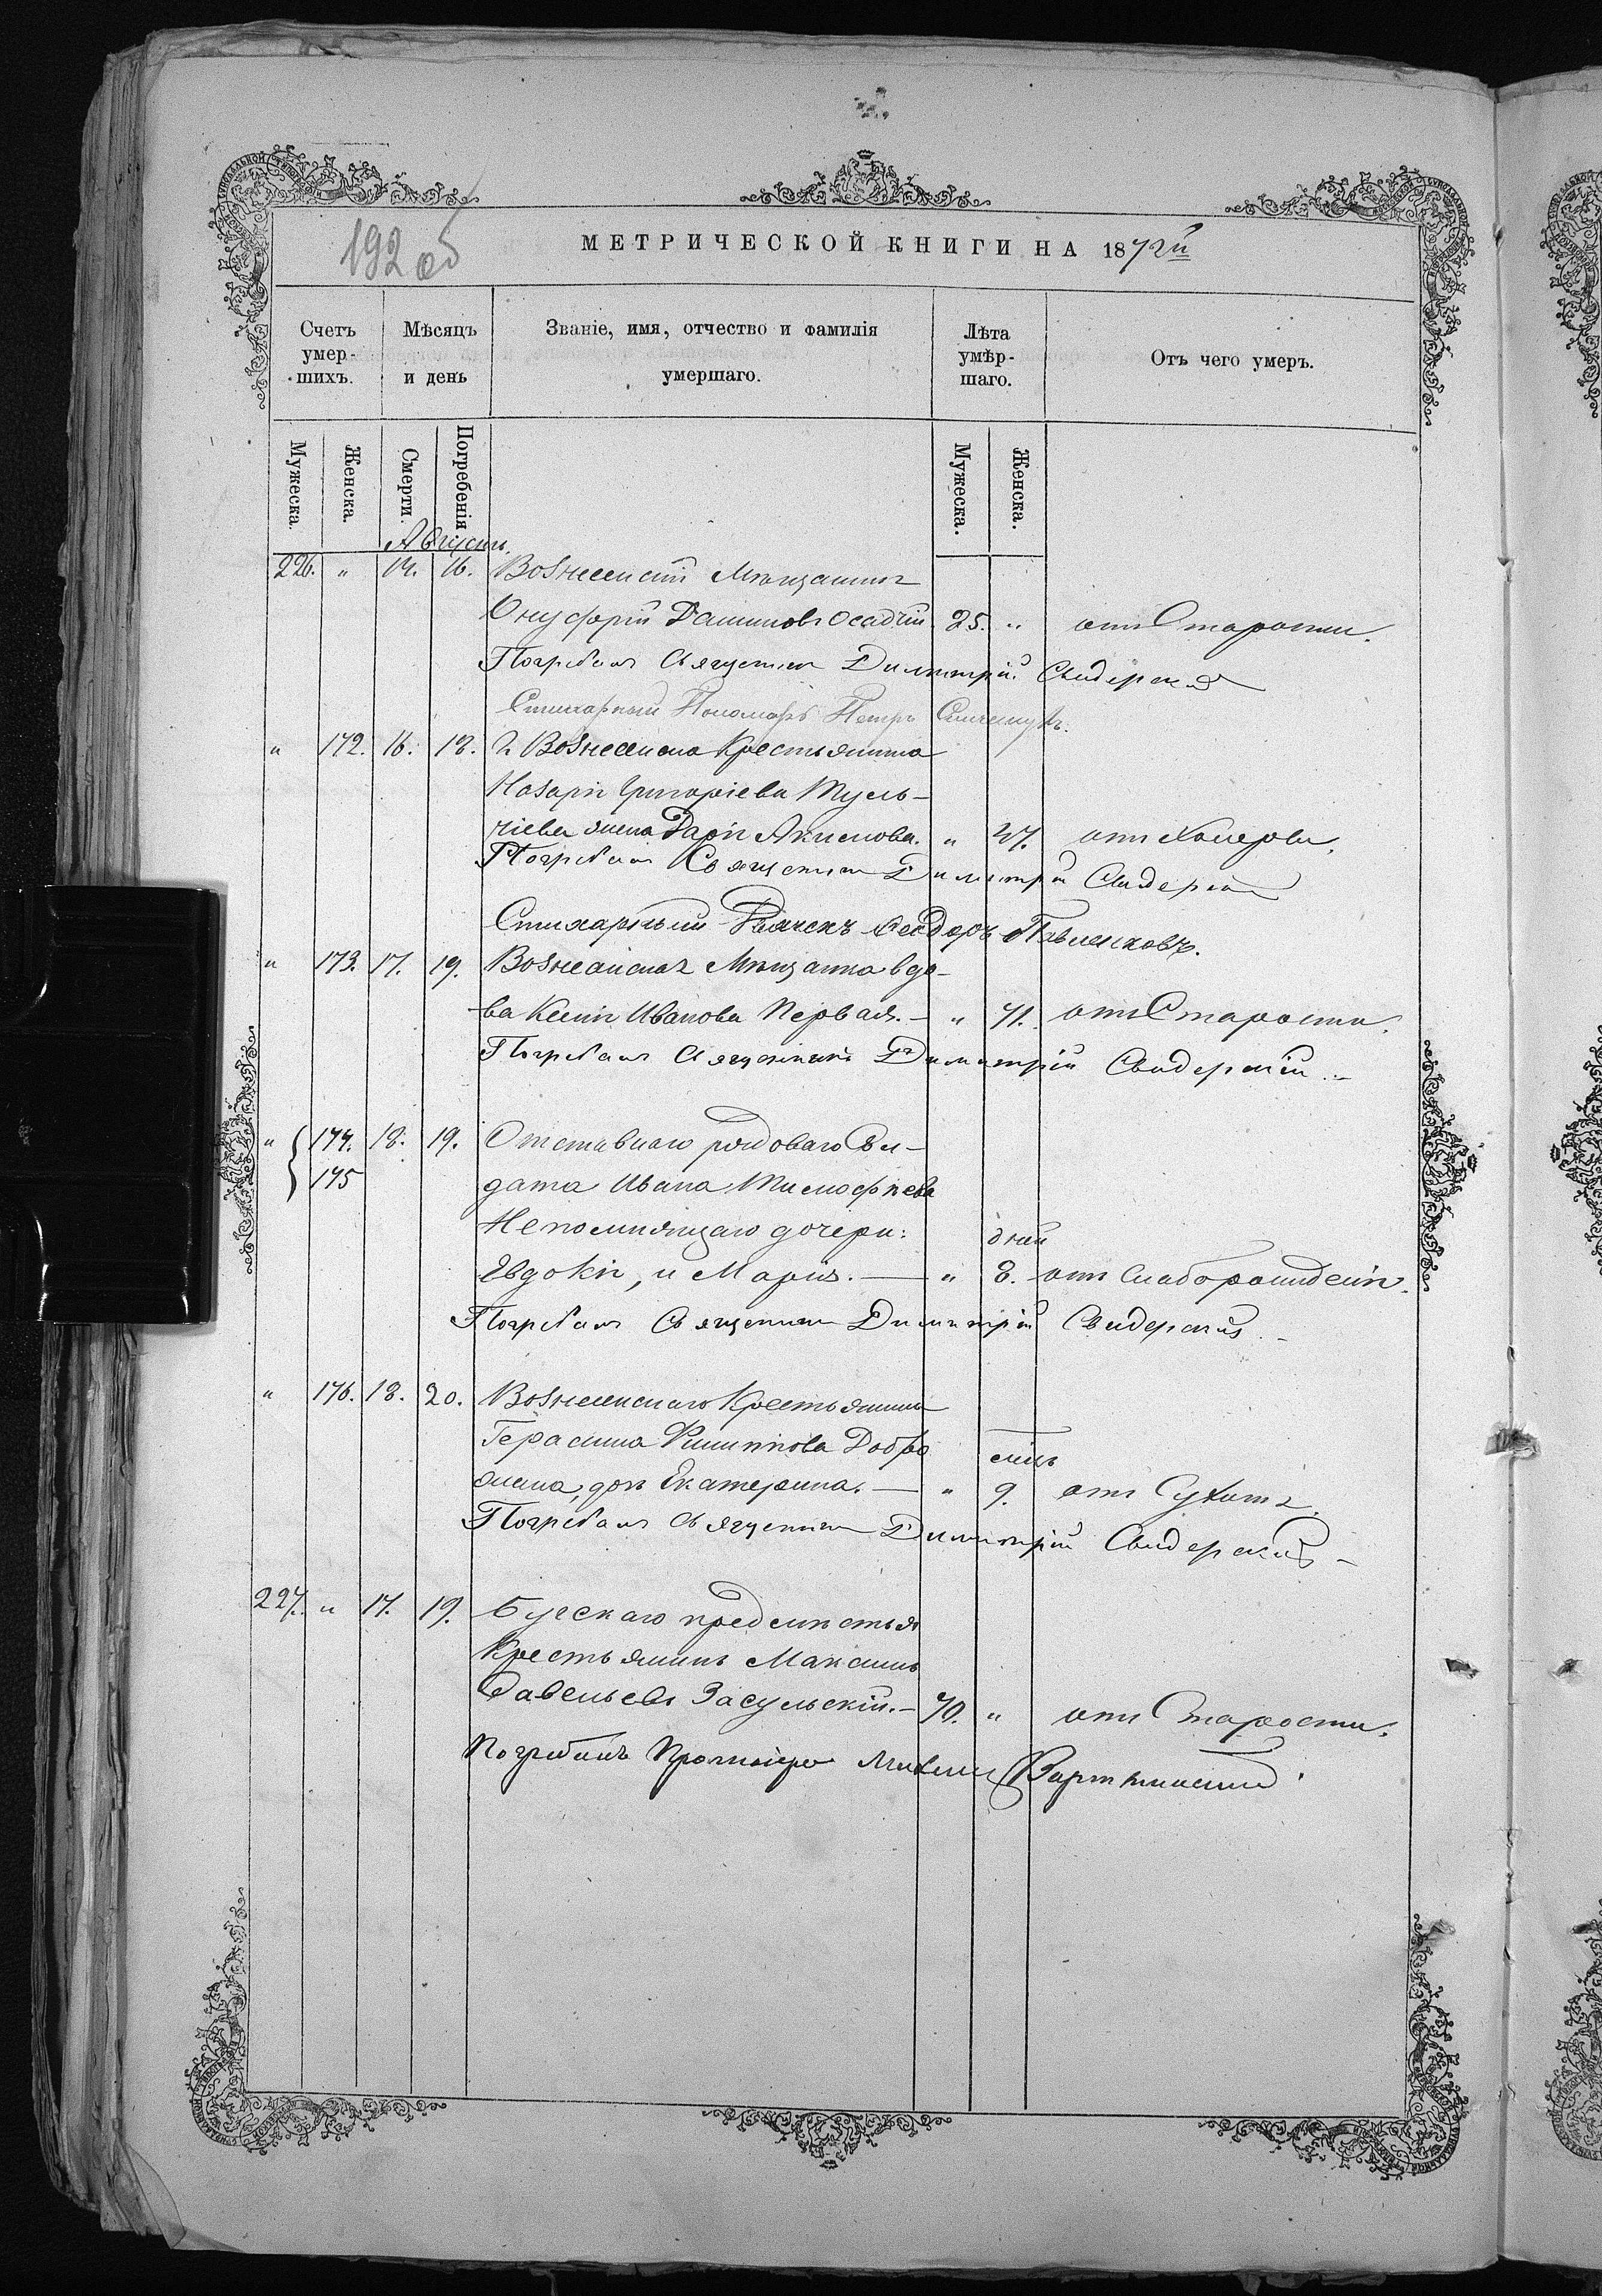 192 об
МЕТРИЧЕСКОЙ КНИГИ НА 1872й
Счетъ умер-шихъ.
Мѣсяцъ и день
Званіе, имя, отчество и фамилія умершаго.
Лѣта умѣр-шаго.
Отъ чего умеръ.
Мужеска. Женска. Смерти. Погребенія Мужеска. Женска.
Августъ.
226. " 14. 16. Вознесенскій Мѣщанинъ
Онуфрій Осадчій 25. " отъ Старости.
Погребалъ Священникъ Димитрій Свидерскій
Стихарный Пономарь Петръ
" 172. 16. 18. Г. Вознесенска Крестьянина
Назарія Григоріева Мусь-
чіева жена Дарія Акимова. " 47. отъ Холеры.
Погребалъ Священникъ Димитрій Свидерскій
Стихарный Дьячекъ Ѳеодоръ Павленковъ.
" 173. 17. 19. Вознесенская Мѣщанка вдо-
ва Ксенія Иванова Первая. — " 71. отъ Старости.
Погребалъ Священникъ Димитрій Свидерскій
" 174. 18. 19. Отставнаго рядоваго Сол-
175 дата Ивана Тимофѣева
Непомнящаго дочери: дней
Евдокія, и Марія. — " 8. отъ Слаборожденія.
Погребалъ Священникъ Димитрій Свидерскій
" 176. 18. 20. Вознесенскаго Крестьянина
Герасима Филипова Добро
дочь Екатерина. — " 9. отъ Сухотъ.
Погребалъ Священникъ Димитрій Свидерскій
227. " 17. 19. Бугскаго предмѣстья
Крестьянинъ Максимъ
Савельевъ Засульскій. — 70. " отъ Старости.
Погребалъ Протоіерей